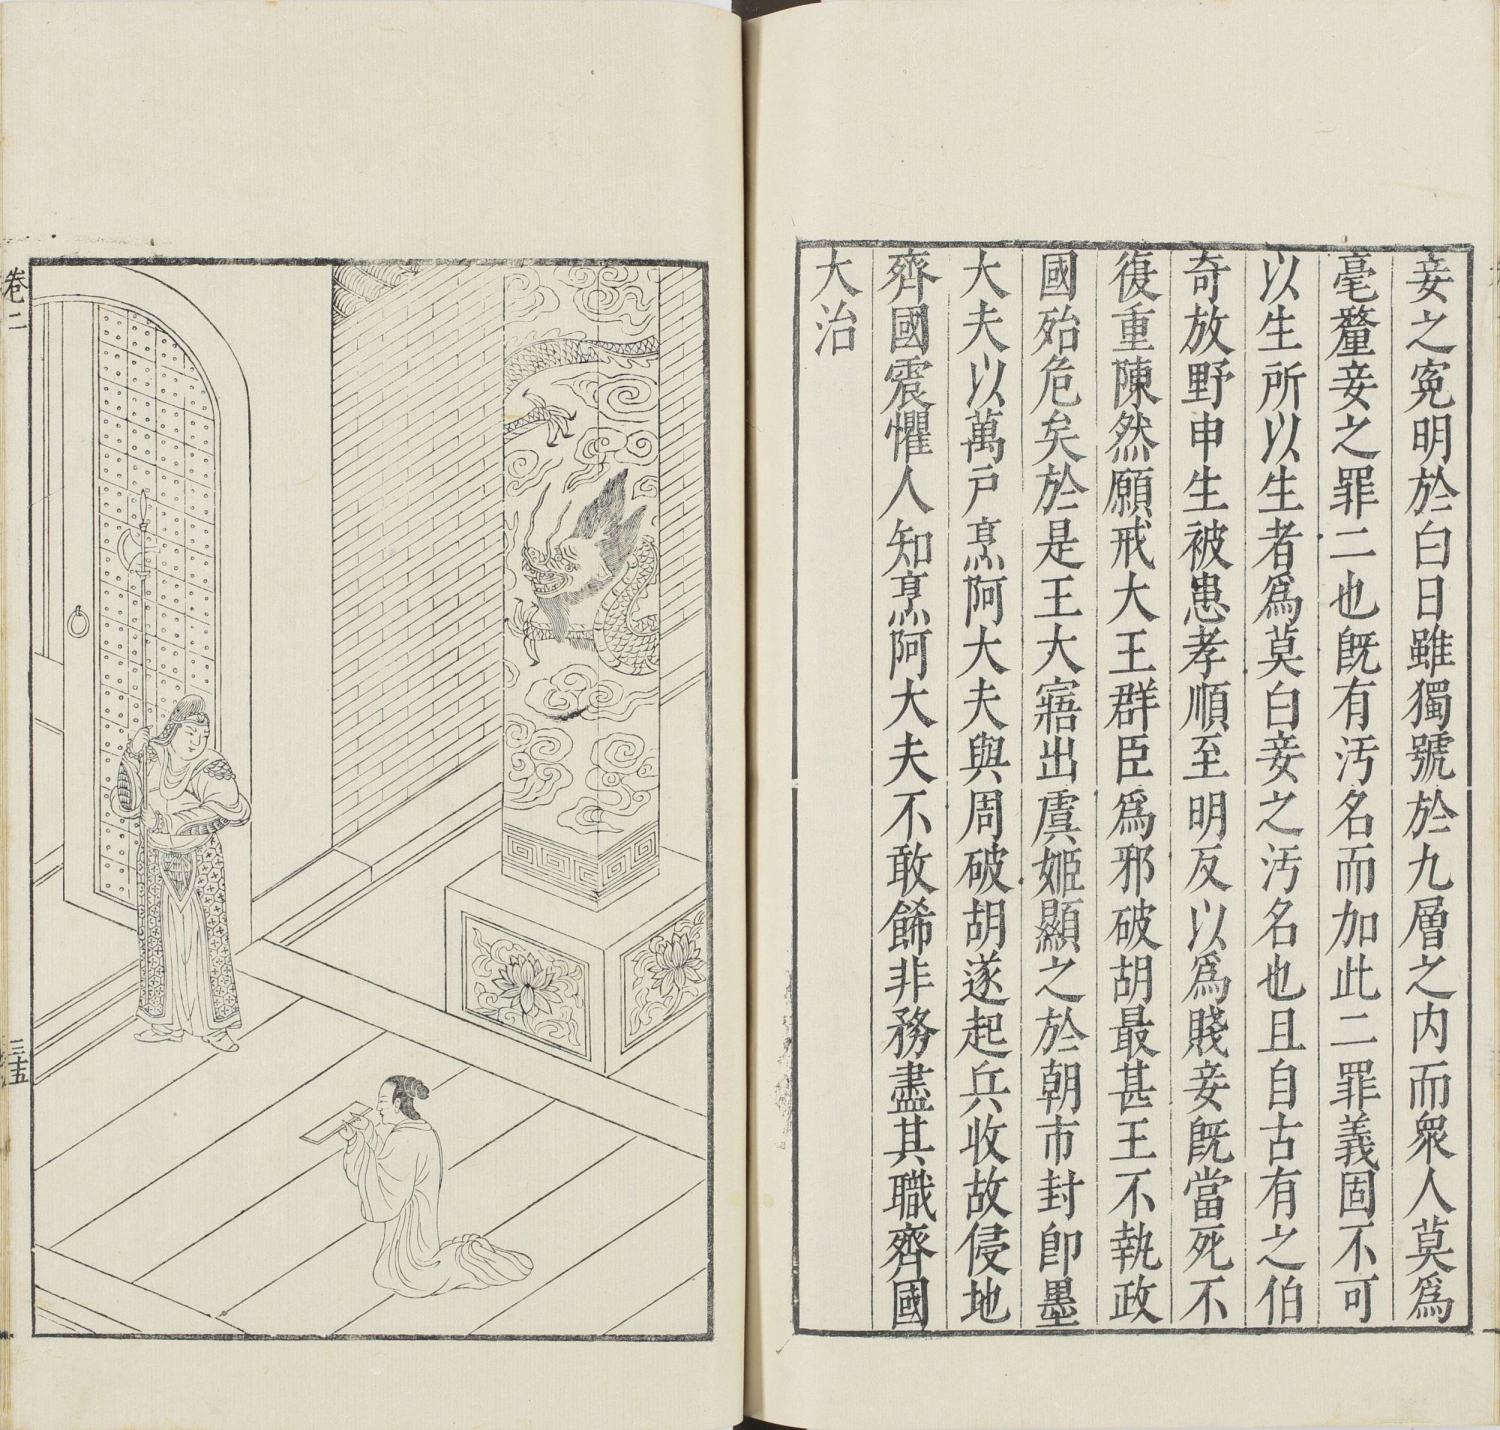 妾之寃明於白日雖獨號於九層之内而衆人莫爲
毫釐妾之罪二也旣有汚名而加此二罪義固不可
以生所以生者爲莫白妾之汚名也且自古有之伯
奇放野申生被患孝順至明反以爲賤妾旣當死不
復重陳然願戒大王群臣爲邪破胡最甚王不執政
國殆危矣於是王大寤出虞姬顯之於朝市封卽墨
大夫以萬戸烹阿大夫與周破胡遂起兵收故侵地
齊國震懼人知烹阿大夫不敢餙非務盡其職齊國
大治
卷二
三五